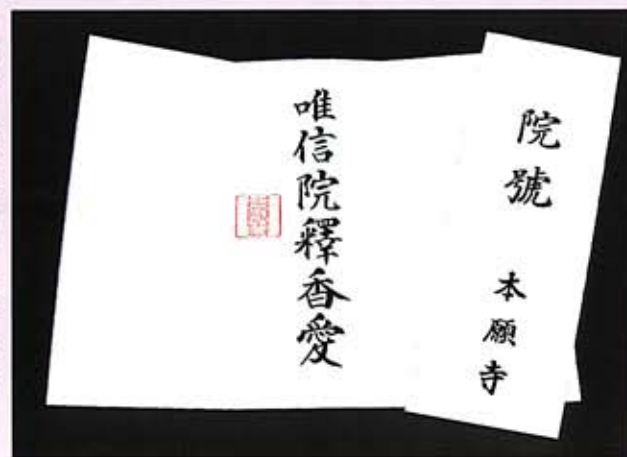 院號
本願寺
唯信院釋香愛